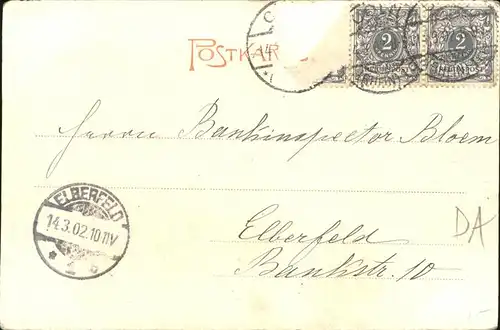 POSTKAR
2 2
Herrn Bankinspector Bloem
ELBERFELD
14.3.02.10-11V
* 1 b
Elberfeld
Bankstr. 10
DA